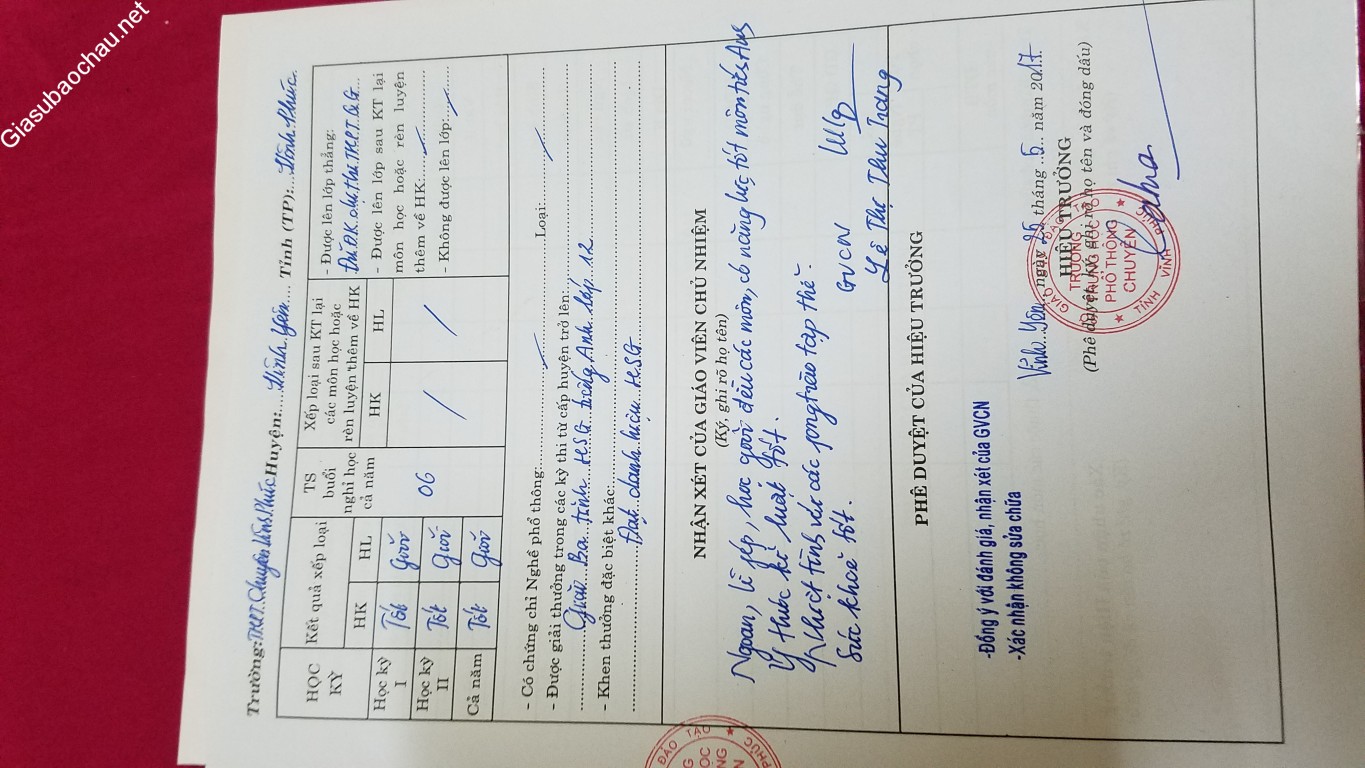 Giasubaochau.net
Trường: THPT Chuyên Vĩnh Phúc Huyện: Vĩnh Yên Tỉnh (TP): Vĩnh Phúc
HỌC KỲ
Kết quả xếp loại
HK
HL
TS buổi nghỉ học cả năm
Xếp loại sau KT lại các môn học hoặc rèn luyện thêm về HK
HK
HL
Học kỳ I
Tốt
Giỏi
Học kỳ II
Tốt
Giỏi
06
/
/
Cả năm
Tốt
Giỏi
- Được lên lớp thẳng:
Đủ ĐK dự thi THPT QG
- Được lên lớp sau KT lại
môn học hoặc rèn luyện
thêm về HK:
- Không được lên lớp:
- Có chứng chỉ Nghề phổ thông: Loại:
- Được giải thưởng trong các kỳ thi từ cấp huyện trở lên:
Giải Ba tỉnh HSG tiếng Anh lớp 12
- Khen thưởng đặc biệt khác:
Đạt danh hiệu HSG
NHẬN XÉT CỦA GIÁO VIÊN CHỦ NHIỆM
(Ký, ghi rõ họ tên)
Ngoan, lễ phép, học giỏi đều các môn, có năng lực tốt môn tiếng Anh
Ý thức kỉ luật tốt.
Nhiệt tình với các phong trào tập thể.
Sức khoẻ tốt.
GVCN
Lê Thị Thu Trang
PHÊ DUYỆT CỦA HIỆU TRƯỞNG
-Đồng ý với đánh giá, nhận xét của GVCN
-Xác nhận không sửa chữa
Vĩnh Yên, ngày 25 tháng 5 năm 2017
HIỆU TRƯỞNG
(Phê duyệt, ký, ghi rõ họ tên và đóng dấu)
TRƯỜNG
TRUNG HỌC
PHỔ THÔNG
CHUYÊN
★ TỈNH VĨNH PHÚC ★
ĐÀO TẠO
PHÚC